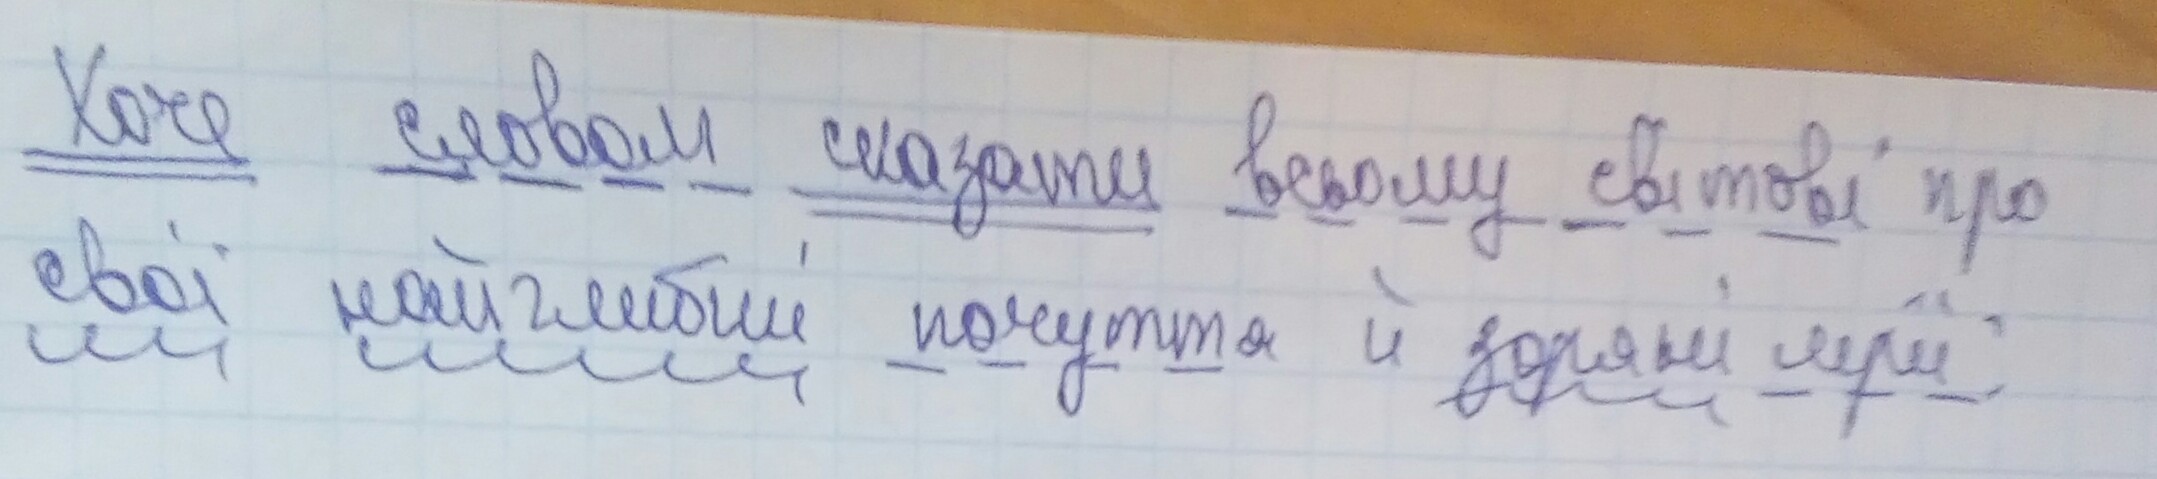 Хоче словом сказати всьому світові про
свої найглибші почуття й зоряні мрії.